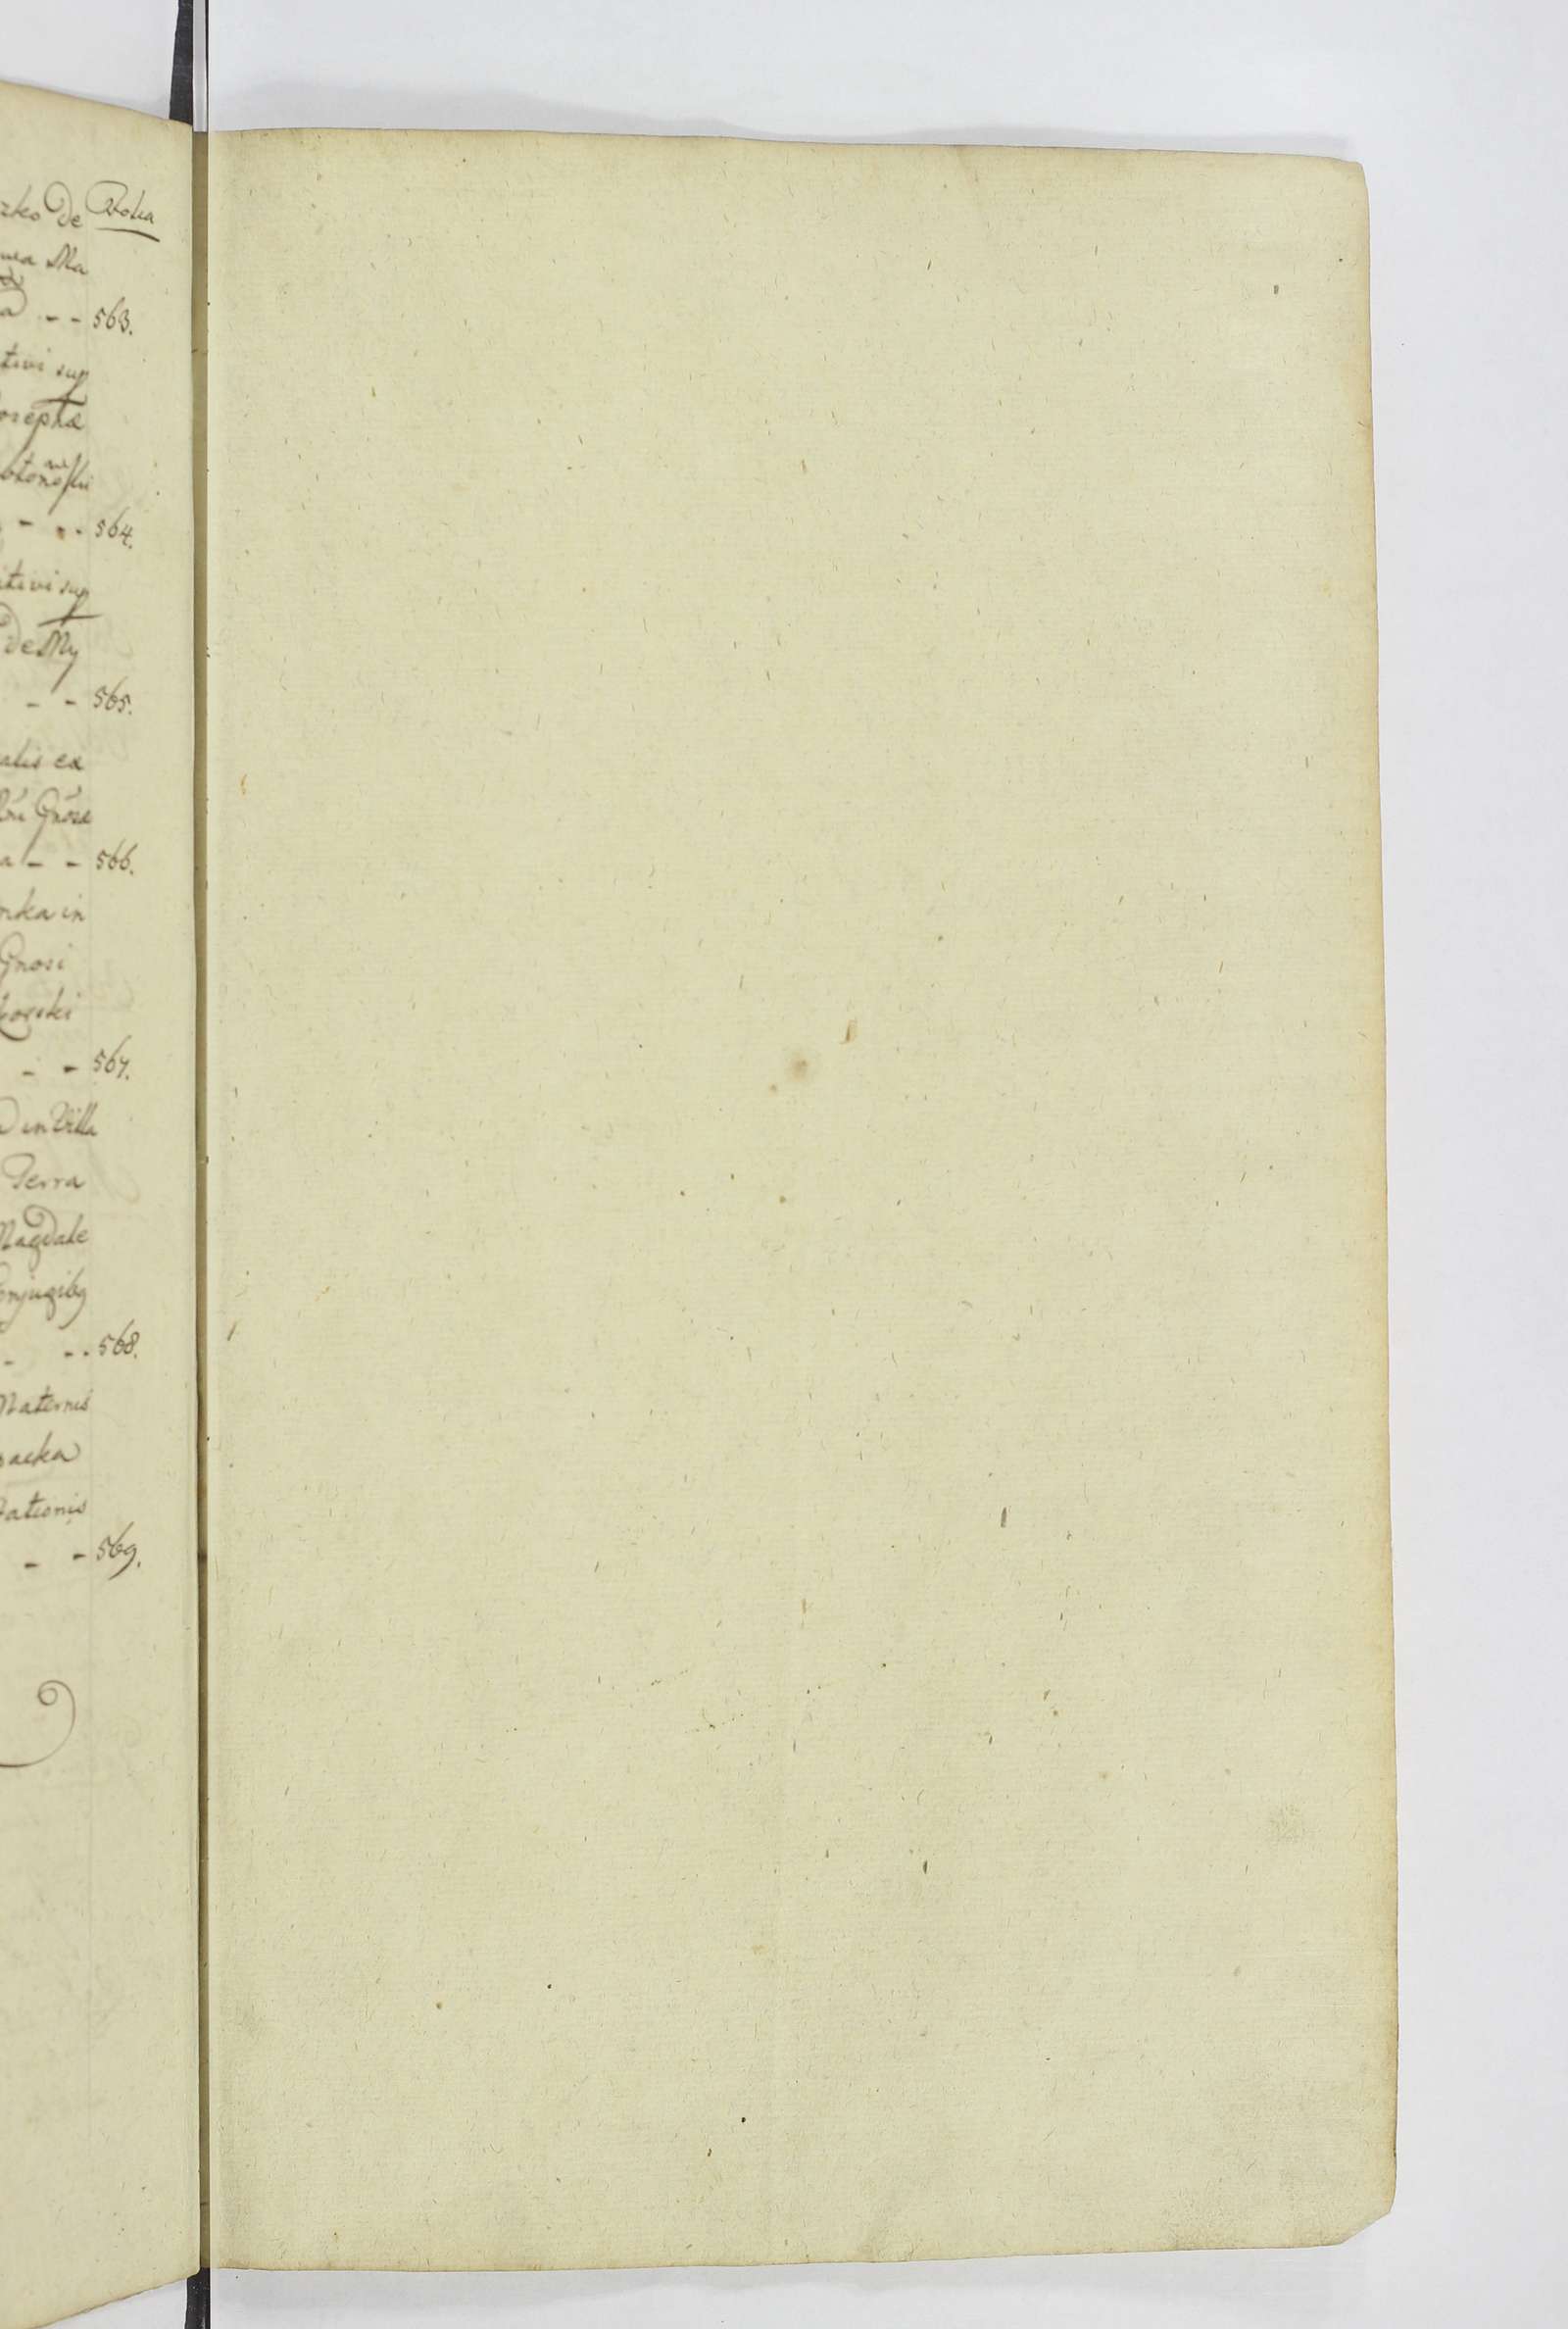 zko De Folia
wa Ma
a - - 563.
tivi sup
osepha
- - - 564.
itivi sup
de My
- - 565.
alis ex
Gnose
a - - 566.
nka in
Gnosi
orski
- - 567.
D in Villa
Terra
Magdale
onjugibq
- - 568.
Maternis
packa
dationis
- - 569.